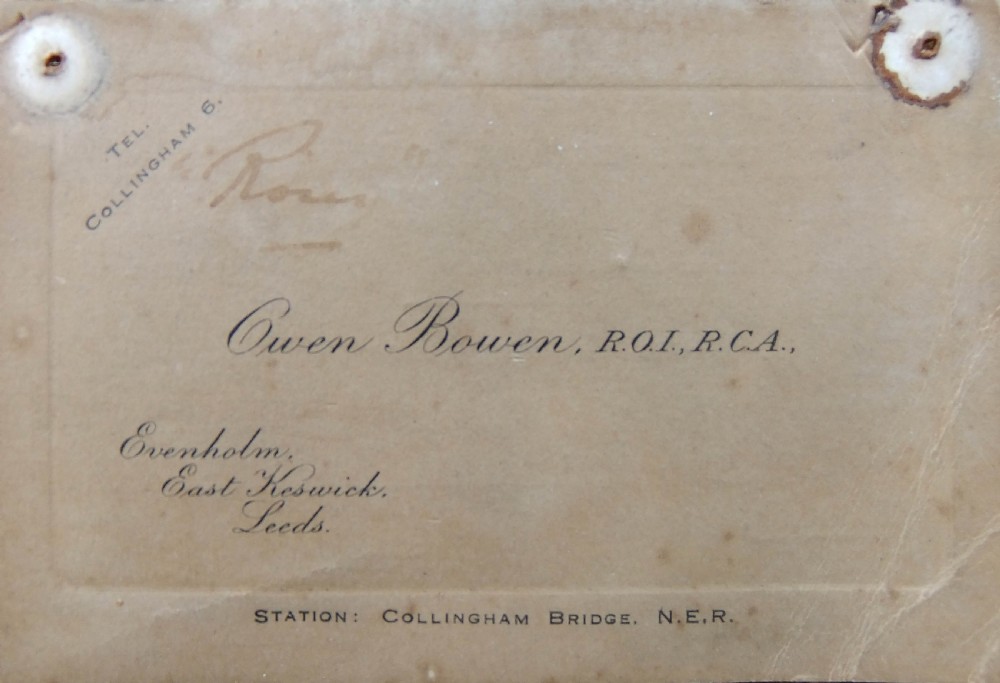 TEL.
COLLINGHAM 6.
"Roses"
Owen Bowen, R.O.I., R.C.A.,
Evenholm,
East Keswick,
Leeds.
STATION: COLLINGHAM BRIDGE, N.E.R.